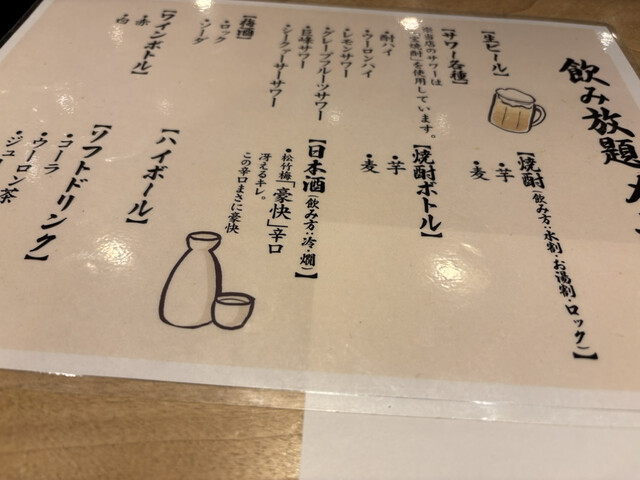 飲み放題
【生ビール】
【サワー各種】
※当店のサワーは
「大焼酎」を使用しています。
・酎ハイ
・ウーロンハイ
・レモンサワー
・グレープフルーツサワー
・巨峰サワー
・シークァーサーサワー
【梅酒】
・ロック
・ソーダ
【ワインボトル】
・赤
・白
【焼酎(飲み方:水割・お湯割・ロック)】
・芋
・麦
【焼酎ボトル】
・芋
・麦
【日本酒(飲み方:冷・燗)】
・松竹梅「豪快」辛口
冴えるキレ。
この辛口まさに豪快
【ハイボール】
【ソフトドリンク】
・コーラ
・ウーロン茶